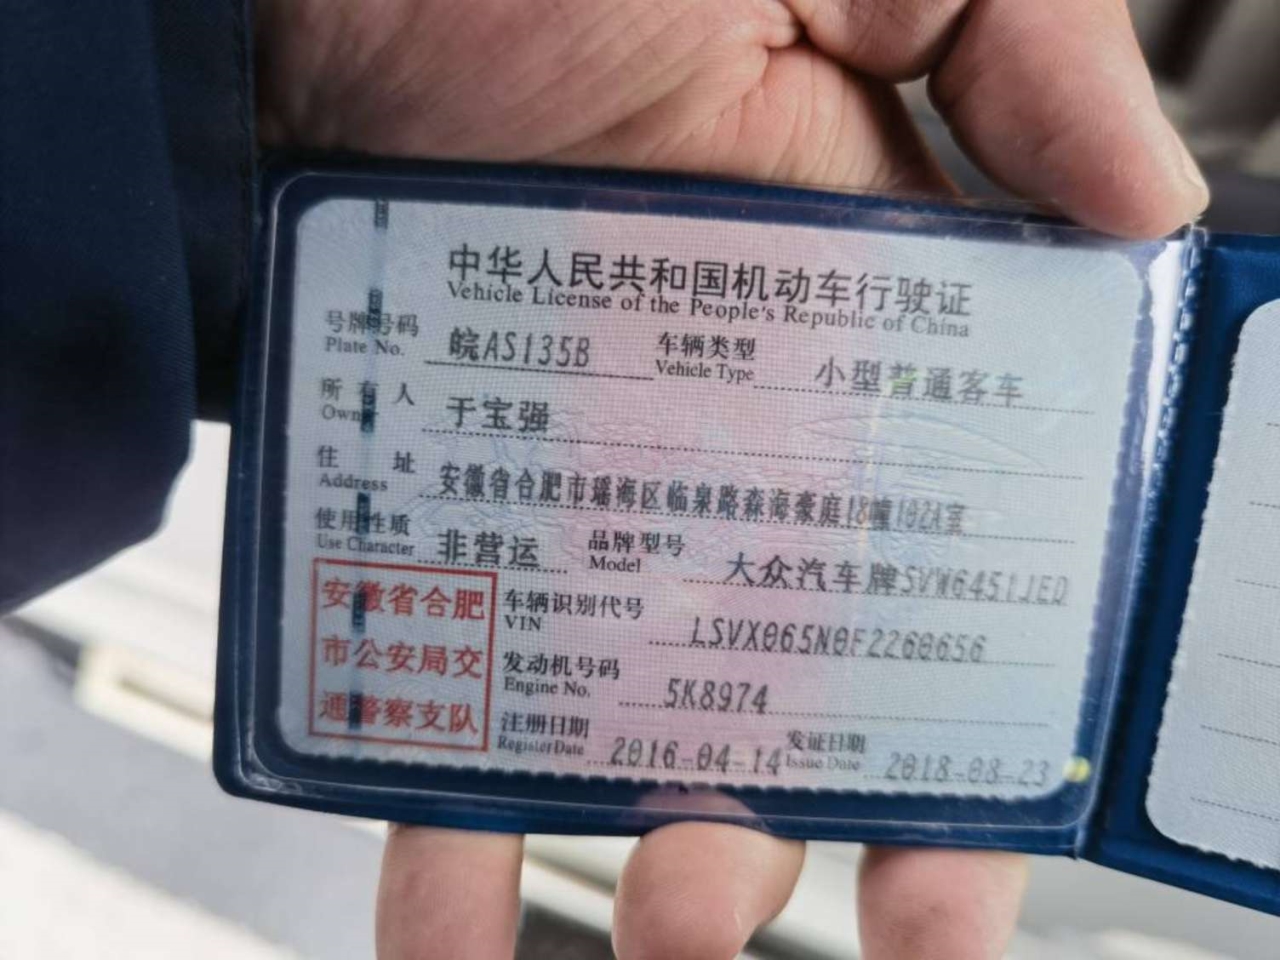 中华人民共和国机动车行驶证
Vehicle License of the People's Republic of China
号牌号码 皖AS135B 车辆类型 小型普通客车
Plate No. Vehicle Type
所有人 于宝强
Owner
住址 安徽省合肥市瑶海区临泉路森海豪庭18幢102A室
Address
使用性质 非营运 品牌型号 大众汽车牌SVW6451JED
Use Character Model
安徽省合肥
市公安局交
通警察支队
车辆识别代号 LSVX065N0F2260656
VIN
发动机号码 5K8974
Engine No.
注册日期 2016-04-14 发证日期 2018-08-23
Register Date Issue Date